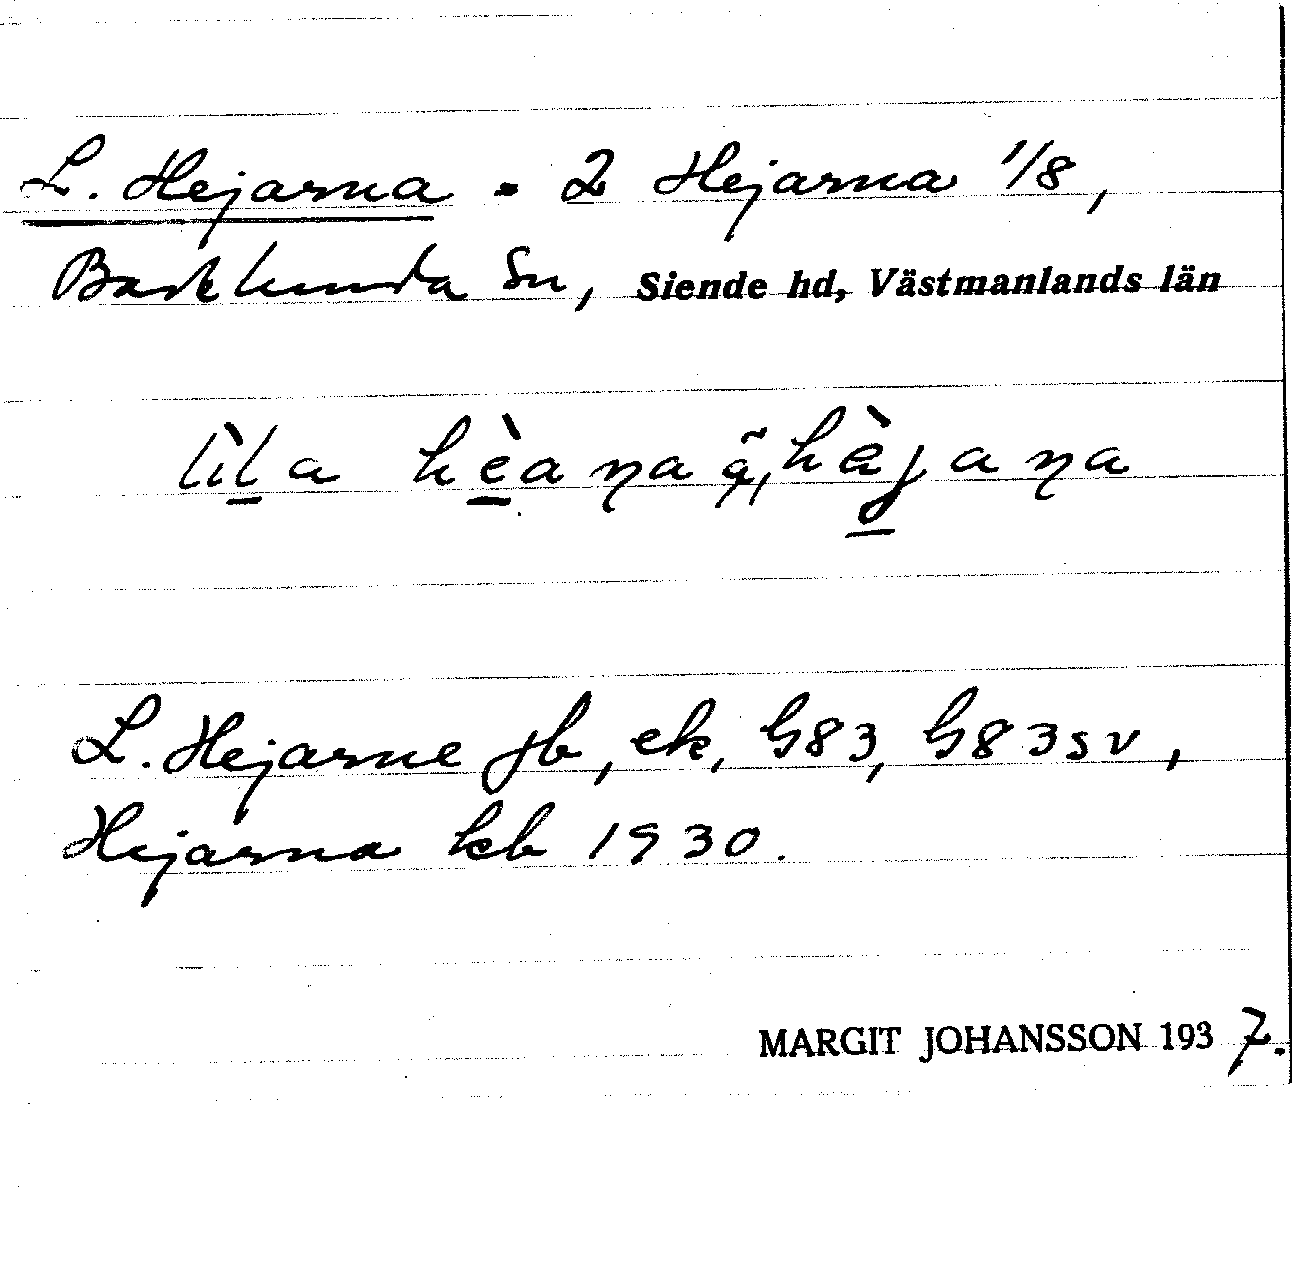 L. Hejarna - 2 Hejarna 1/8,
Barkhunda Sn, Siende hd, Västmanlands län
lìla hèaɳa hèjaɳa
L. Hejarne jb, ek, G83, G83sv,
Hejarna kb 1930.
MARGIT JOHANSSON 1937.